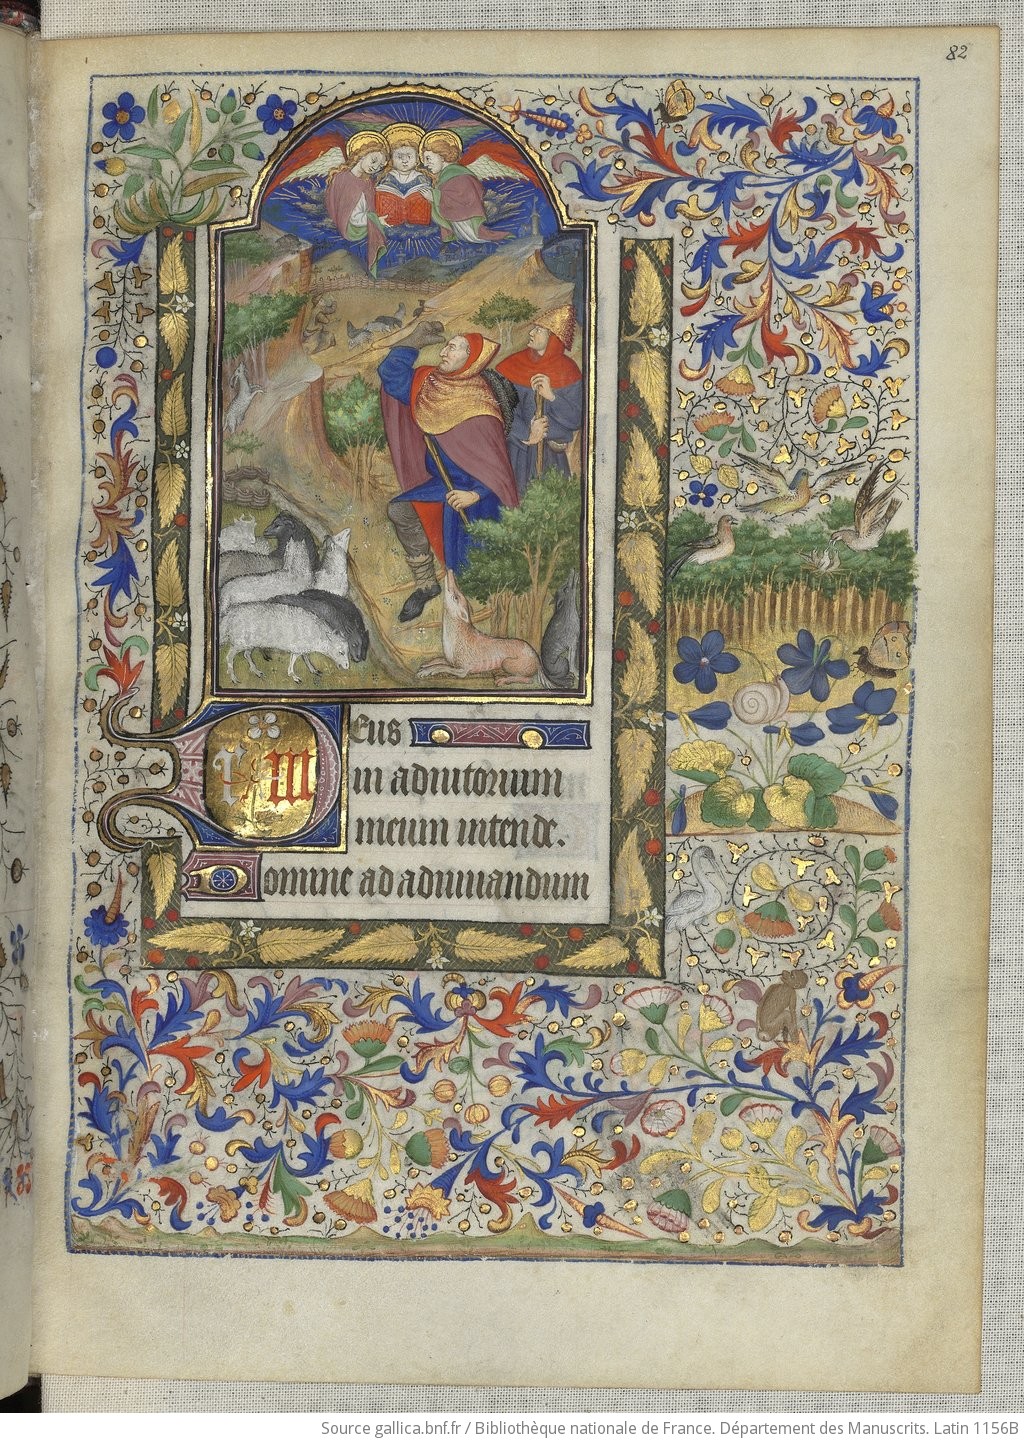 82
Deus
in adiutorium
meum intende.
Domine ad adiuuandum
Source gallica.bnf.fr / Bibliothèque nationale de France. Département des Manuscrits. Latin 1156B